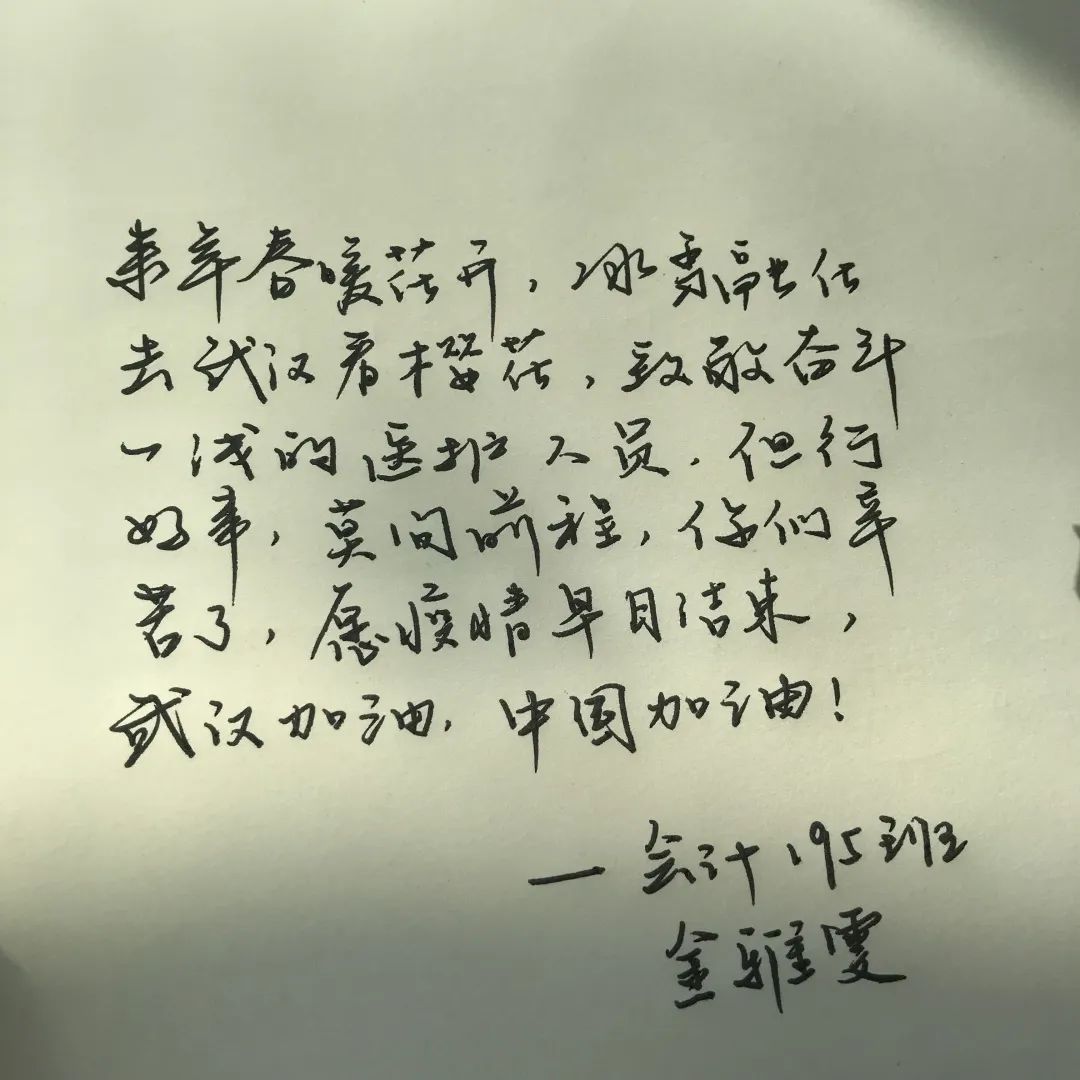 来年春暖花开，冰雪融化
去武汉看樱花，致敬奋斗
一线的医护人员．但行
好事，莫问前程，你们辛
苦了，愿疫情早日结束，
武汉加油．中国加油！
—会计195班
金雅雯